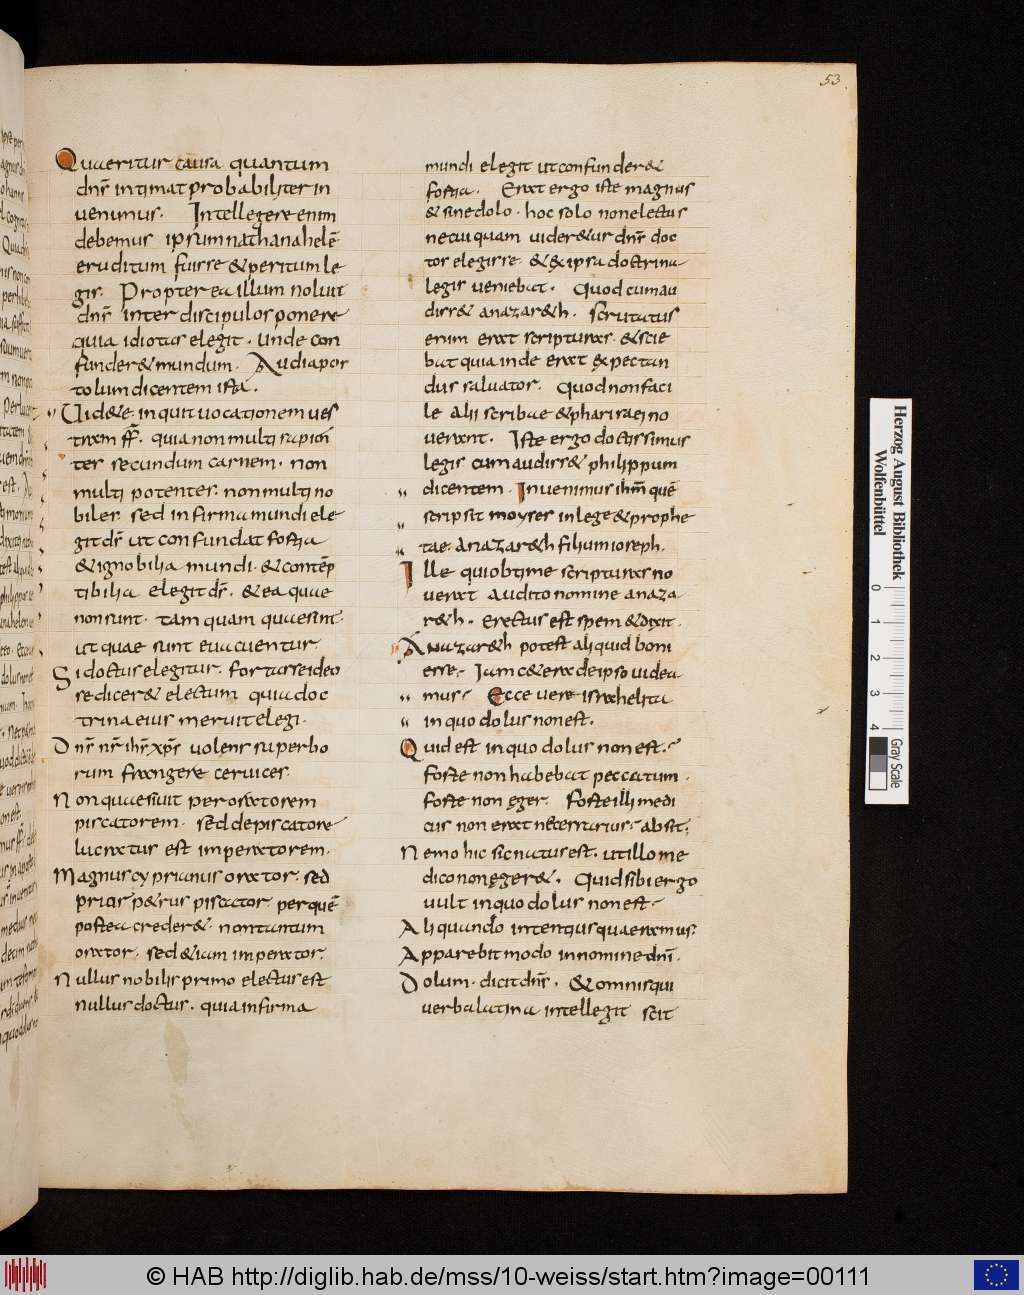 53
Quaeritur causa quantum
dn̄s intimat probabiliter in
uenimus. Intellegere enim
debemus ipsum nathanahelē
eruditum fuisse & peritum le
gis. Propterea illum noluit
dn̄s inter discipulos ponere
quia idiotas elegit. unde con
funder& mundum. Audi apos
tolum dicentem ista.
Uid&e inquit uocationem ues
tram fr̄. quia non multi sapien
tes secundum carnem. non
multi potentes. non multi no
biles. sed infirma mundi ele
git d̄s ut confundat fortia
& ignobilia mundi. & contēp
tibilia elegit d̄s. & ea quae
non sunt. tam quam quae sint.
ut quae sunt euacuentur.
Si doctus elegitur. fortasse ideo
se dicer& electum quia doc
trina eius meruit elegi.
Dn̄s nr̄ ih̄s xp̄s uolens superbo
rum frangere ceruices.
Non quaesiuit per oratorem
piscatorem. sed de piscatore
lucratus est imperatorem.
Magnus cyprianus orator. sed
prius p&rus piscator per quē
postea creder&. non tantum
orator. sed & iam imperator.
Nullus nobilis primo electus est
nullus doctus. quia infirma
mundi elegit ut confunder&
fortia. Erat ergo iste magnus
& sine dolo. hoc solo non electus
ne cuiquam uider&ur dn̄s doc
tor elegisse. & ex ipsa doctrina
legis ueniebat. Quod cum au
diss& anazar&h. scrutatus
enim erat scripturas. & scie
bat quia inde erat expectan
dus saluator. Quod non faci
le alii scribae & pharisaei no
uerant. Iste ergo doctissimus
legis cum audiss& philippum
dicentem. Inuenimus ih̄m quē
scripsit moyses in lege & prophe
tae. anazar&h filium ioseph.
Ille qui obtime scripturas no
uerat audito nomine anaza
r&h. erectus est spem & dixit.
Anazar&h potest aliquid boni
esse. Iam c&era de ipso uidea
mus. Ecce uere israhelita
in quo dolus non est.
Quid est in quo dolus non est.
forte non habebat peccatum.
forte non eger. Forte illi medi
cus non erat necessarius. absit.
Nemo hic sic natus est. ut illo me
dico non eger&. Quid sibi ergo
uult in quo dolus non est.
Aliquando intentius quaeramus.
Apparebit modo in nomine dn̄i.
Dolum. dicit dn̄s. & omnis qui
uerba latina intellegit scit
Herzog August Bibliothek
Wolfenbüttel
0 1 2 3 4
Gray Scale
© HAB http://diglib.hab.de/mss/10-weiss/start.htm?image=00111